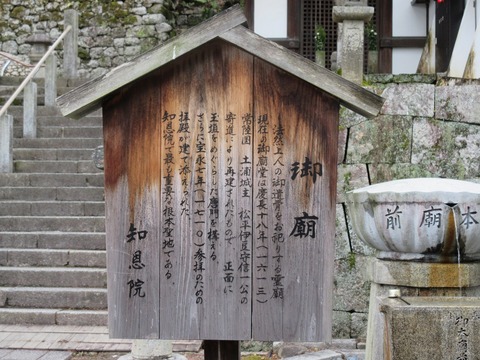 御廟
法然上人の御遺骨をお祀りする霊廟
現在の御廟堂は慶長十八年(一六一三)
常陸國 土浦城主 松平伊豆守信一公の
寄進により再建されたもので、正面に
玉垣をめぐらした唐門を構える。
さらに宝永七年(一七一〇)参拝のための
拝殿が建て添えられた
知恩院で最も重要な根本聖地である。
知恩院
本廟前